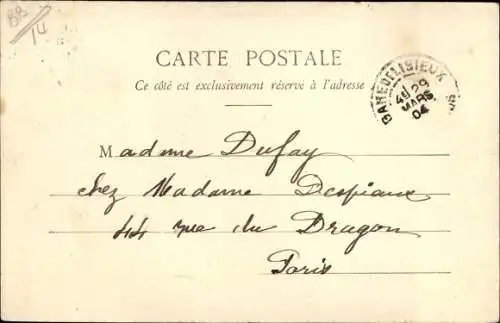 BB
14
CARTE POSTALE
Ce côté est exclusivement réservé à l'adresse
GARE DE LISIEUX
4E 29
MARS
04
Madame Dufay
chez Madame Despiaux
44 rue du Dragon
Paris